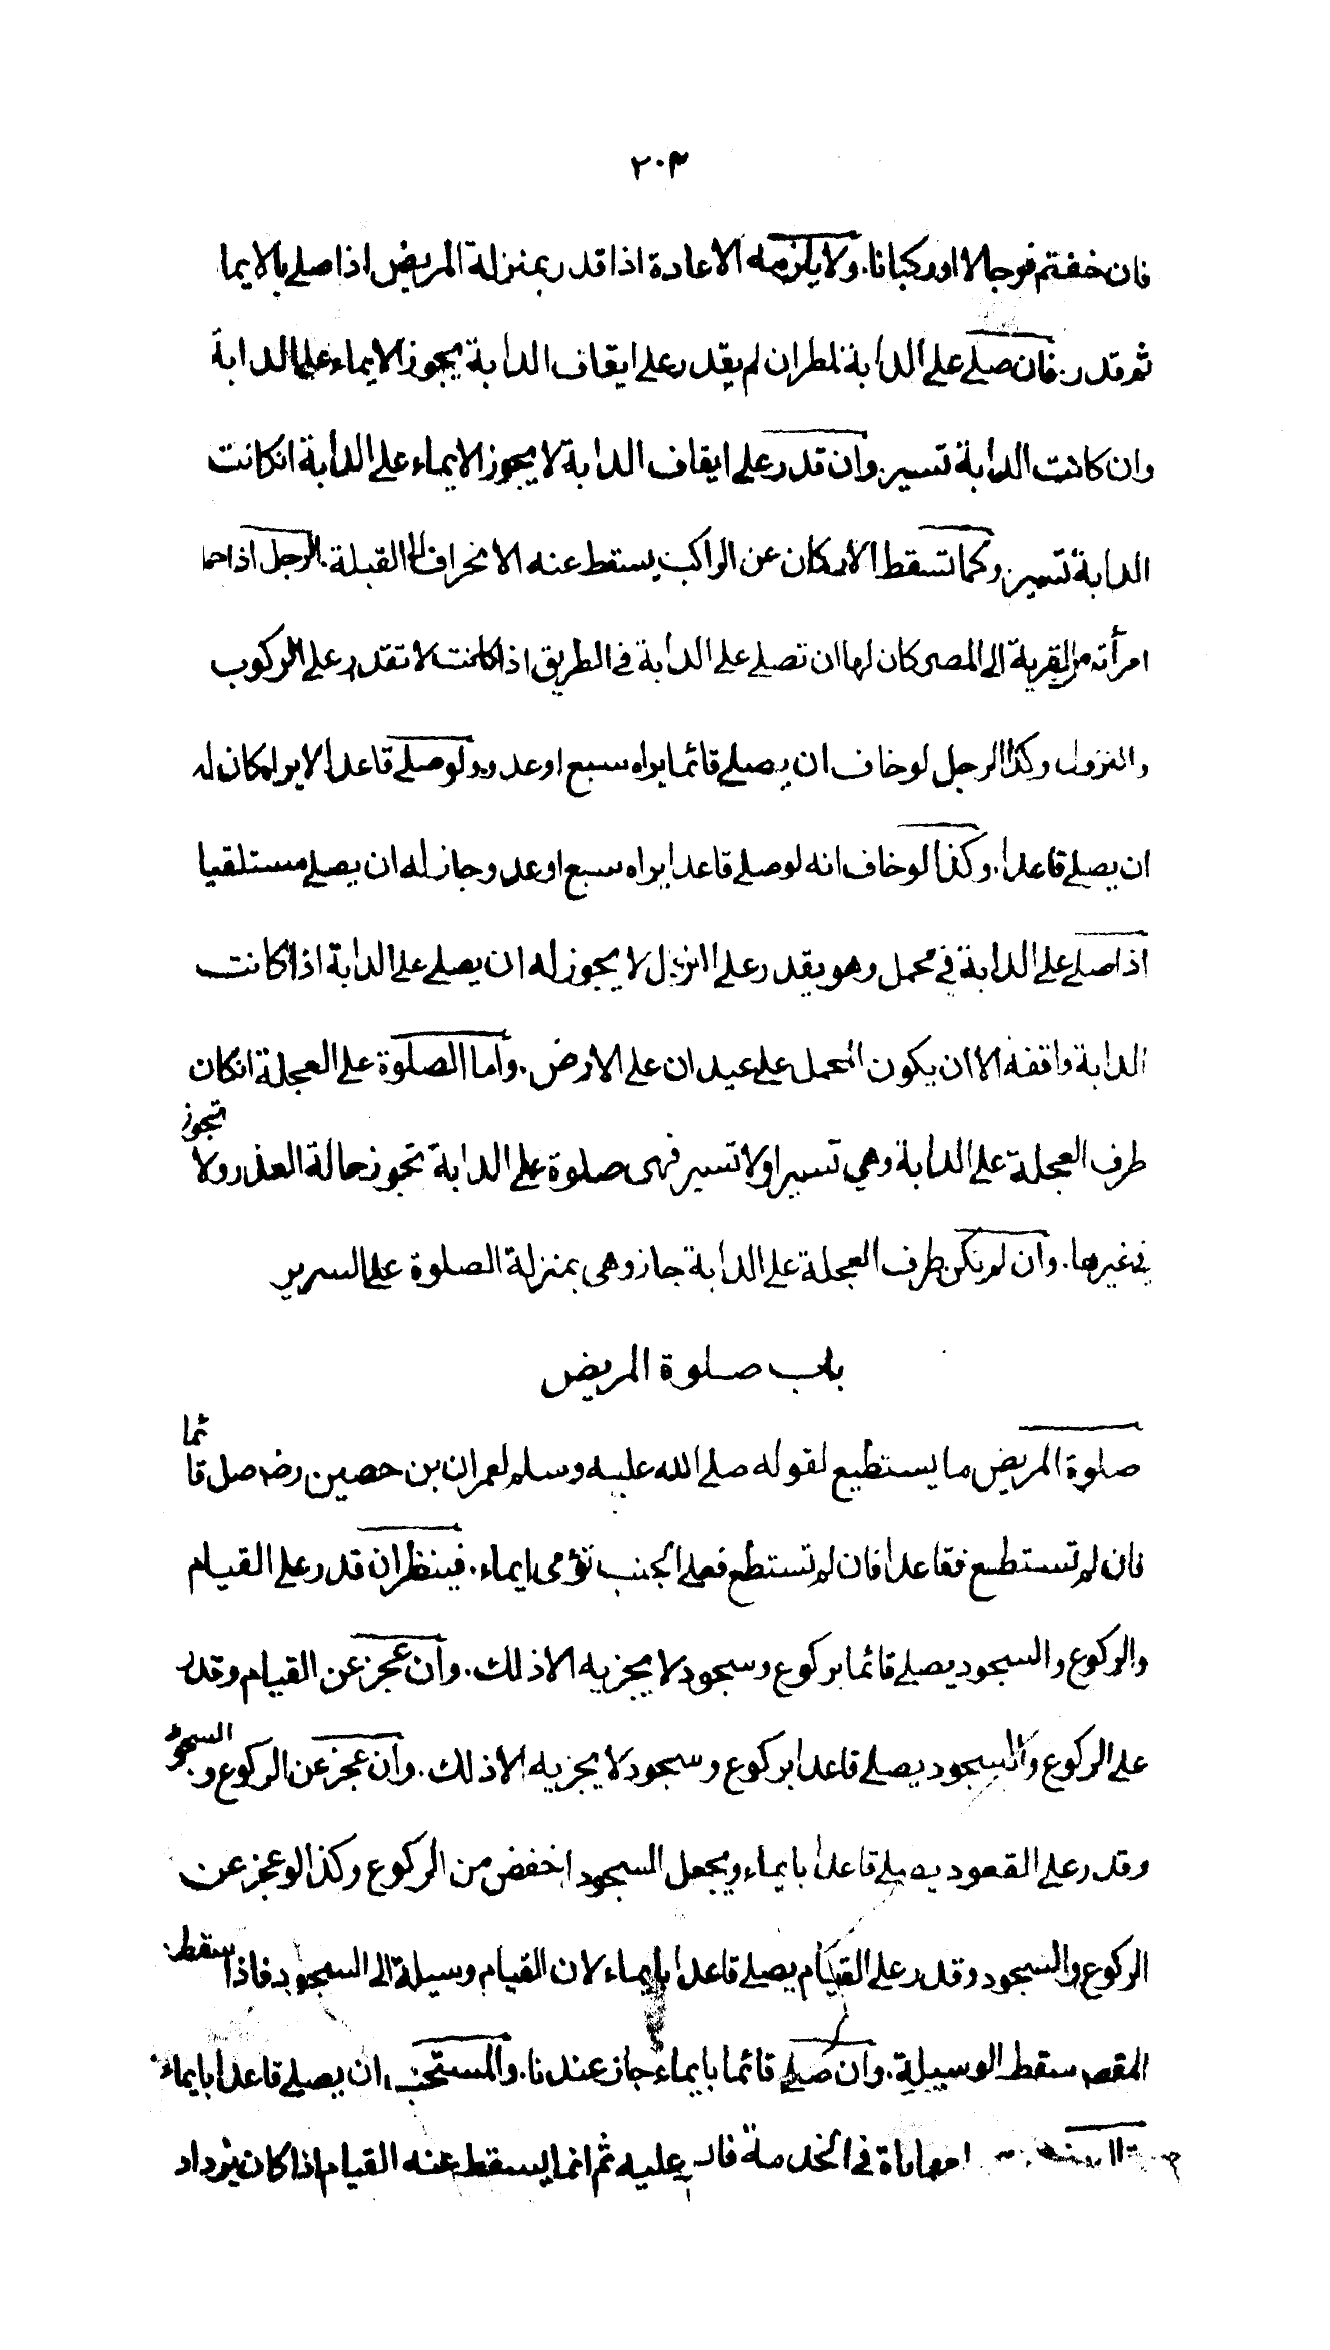 ٢٠٣
فان خفتم فرجالا او ركبانا. ولا يلزمه الاعادة اذا قدر بمنزلة المريض اذا صلى بالايما
ثم قدر. فان صلى على الدابة لمطر ان لم يقدر على ايقاف الدابة يجوز الايماء على الدابة
وان كانت الدابة تسير. وان قدر على ايقاف الدابة لا يجوز الايماء على الدابة انكانت
الدابة تسير. وكما تسقط الاركان عن الراكب يسقط عنه الانحراف الى القبلة. الرجل اذا حمل
امرأته من القرية الى المصر كان لها ان تصلى على الدابة فى الطريق اذا كانت لا تقدر على الركوب
والنزول وكذا الرجل لو خاف ان يصلى قائما يراه سبع او عدو ولو صلى قاعدا لا يراه كان له
ان يصلى قاعدا. وكذا لو خاف انه لو صلى قاعدا يراه سبع او عدو جاز له ان يصلى مستلقيا
اذا صلى على الدابة فى محمل وهو يقدر على النزول لا يجوز له ان يصلى على الدابة اذا كانت
الدابة واقفة الا ان يكون المحمل على عيدان على الارض. واما الصلوة على العجلة انكان
طرف العجلة على الدابة وهي تسير او لا تسير فهى صلوة على الدابة تجوز حالة العذر ولا تجوز
فى غيرها. وان لم يكن طرف العجلة على الدابة جاز وهى بمنزلة الصلوة على السرير
باب صلوة المريض
صلوة المريض ما يستطيع لقوله صلى الله عليه وسلم لعمران بن حصين رضه صل قائما
فان لم تستطيع فقاعدا فان لم تستطع فعلى الجنب تؤمى ايماء. فينظر ان قدر على القيام
والركوع والسجود يصلى قائما بركوع وسجود لا يجزيه الا ذلك. وان عجز عن القيام وقدر
على الركوع والسجود يصلى قاعدا بركوع وسجود لا يجزيه الا ذلك. وان عجز عن الركوع والسجود
وقدر على القعود يصلى قاعدا بايماء ويجعل السجود اخفض من الركوع وكذا لو عجز عن
الركوع والسجود وقدر على القيام يصلى قاعدا بايماء لان القيام وسيلة الى السجود فاذا سقط
المقصد سقط الوسيلة. وان صلى قائما بايماء جاز عندنا. والمستحب ان يصلى قاعدا بايماء
فى الخدمة عليه ثم انما يسقط عنه القيام اذا كان يزداد